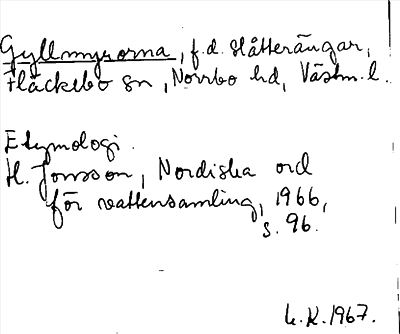 Gyllmyrorna, f.d. slåtterängar,
Fläckebo sn, Norrbo hd, Västm. l.
Etymologi.
H. Jonsson, Nordiska ord
för vattensamling, 1966,
s. 96.
L.K. 1967.